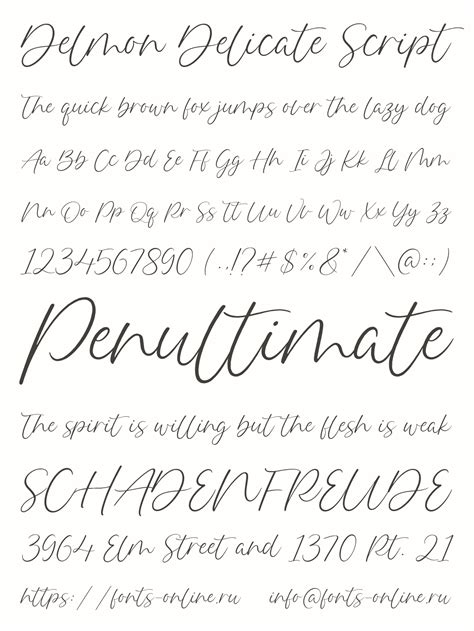 Delmon Delicate Script
The quick brown fox jumps over the lazy dog
Aa Bb Cc Dd Ee Ff Gg Hh Ii Jj Kk Ll Mm
Nn Oo Pp Qq Rr Ss Tt Uu Vv Ww Xx Yy Zz
1234567890 (.,!?#$%&*/\@:;)
Penultimate
The spirit is willing but the flesh is weak
SCHADENFREUDE
3964 Elm Street and 1370 Rt. 21
https://fonts-online.ru info@fonts-online.ru